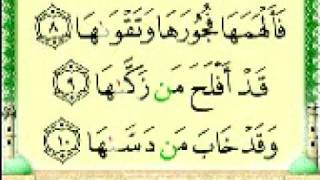 فَأَلْهَمَهَا فُجُورَهَا وَتَقْوَىٰهَا ٨
قَدْ أَفْلَحَ مَن زَكَّىٰهَا ٩
وَقَدْ خَابَ مَن دَسَّىٰهَا ١٠